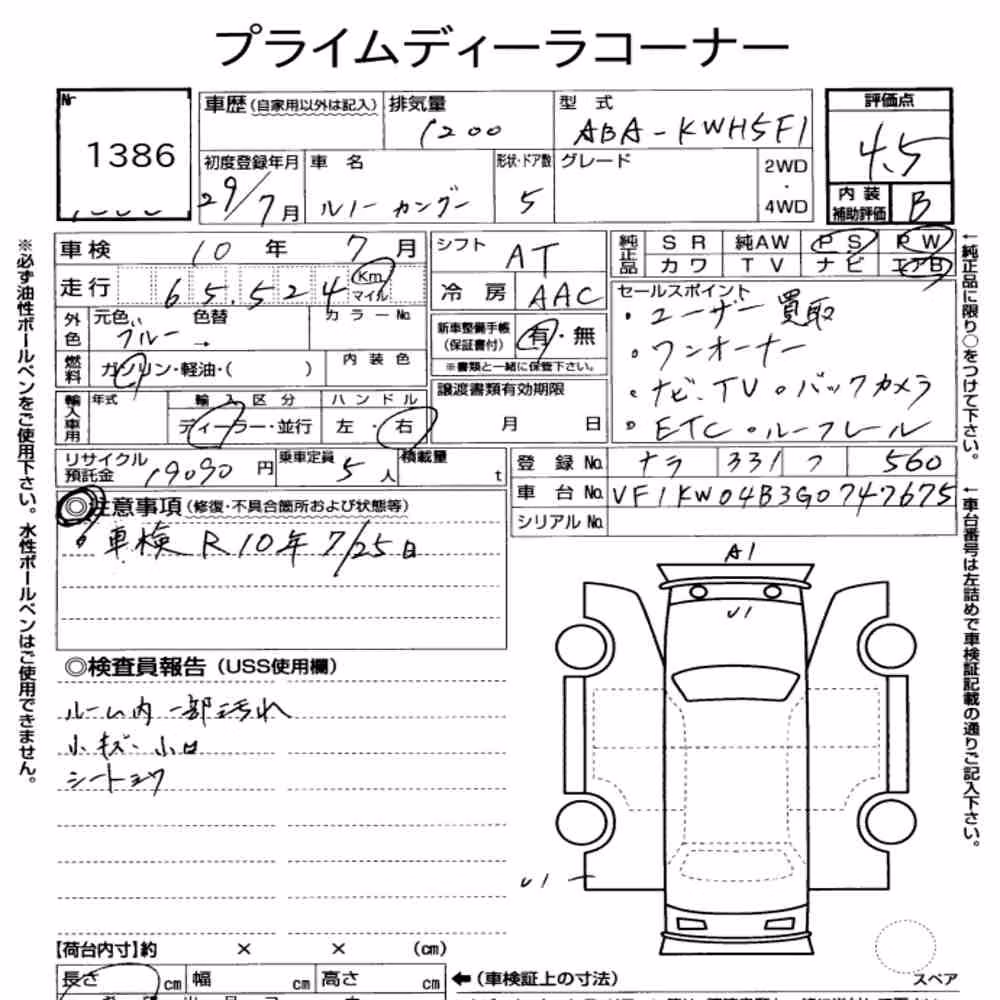 プライムディーラコーナー
Nr 1386
車歴(自家用以外は記入) 排気量 1200 型式 ABA-KWH5F1 評価点 4.5
初度登録年月 29/7月 車名 ルノー カングー 形状・ドア数 5 グレード 2WD・4WD
内装補助評価 B
車検 10年 7月
走行 65,524 Km マイル
外色 元色 ブルー 色替 → カラーNo.
燃料 ガソリン・軽油・( ) 内装色
輸入車用 年式 輸入区分 ディーラー・並行 ハンドル 左・右
リサイクル預託金 19090円 乗車定員 5人 積載量 t
シフト AT
冷房 AAC
新車整備手帳(保証書付) 有・無
※書類と一緒に保管下さい。
譲渡書類有効期限
月 日
純正品 SR 純AW PS PW
カワ TV ナビ エアB
セールスポイント
・ユーザー買取
・ワンオーナー
・ナビ、TV。バックカメラ
・ETC。ルーフレール
登録No. ナラ 331 フ 560
車台No. VF1KW04B3G0747675
シリアルNo.
◎注意事項(修復・不具合箇所および状態等)
・車検 R10年7/25日
◎検査員報告(USS使用欄)
ルーム内一部汚れ
小キズ・小凹
シート
A1
U1
U1
スペア
【荷台内寸】約 × × (cm)
長さ cm 幅 cm 高さ cm
←(車検証上の寸法)
※必ず油性ボールペンをご使用下さい。水性ボールペンはご使用できません。
←純正品に限り○をつけて下さい。
←車台番号は左詰めで車検証記載の通りご記入下さい。